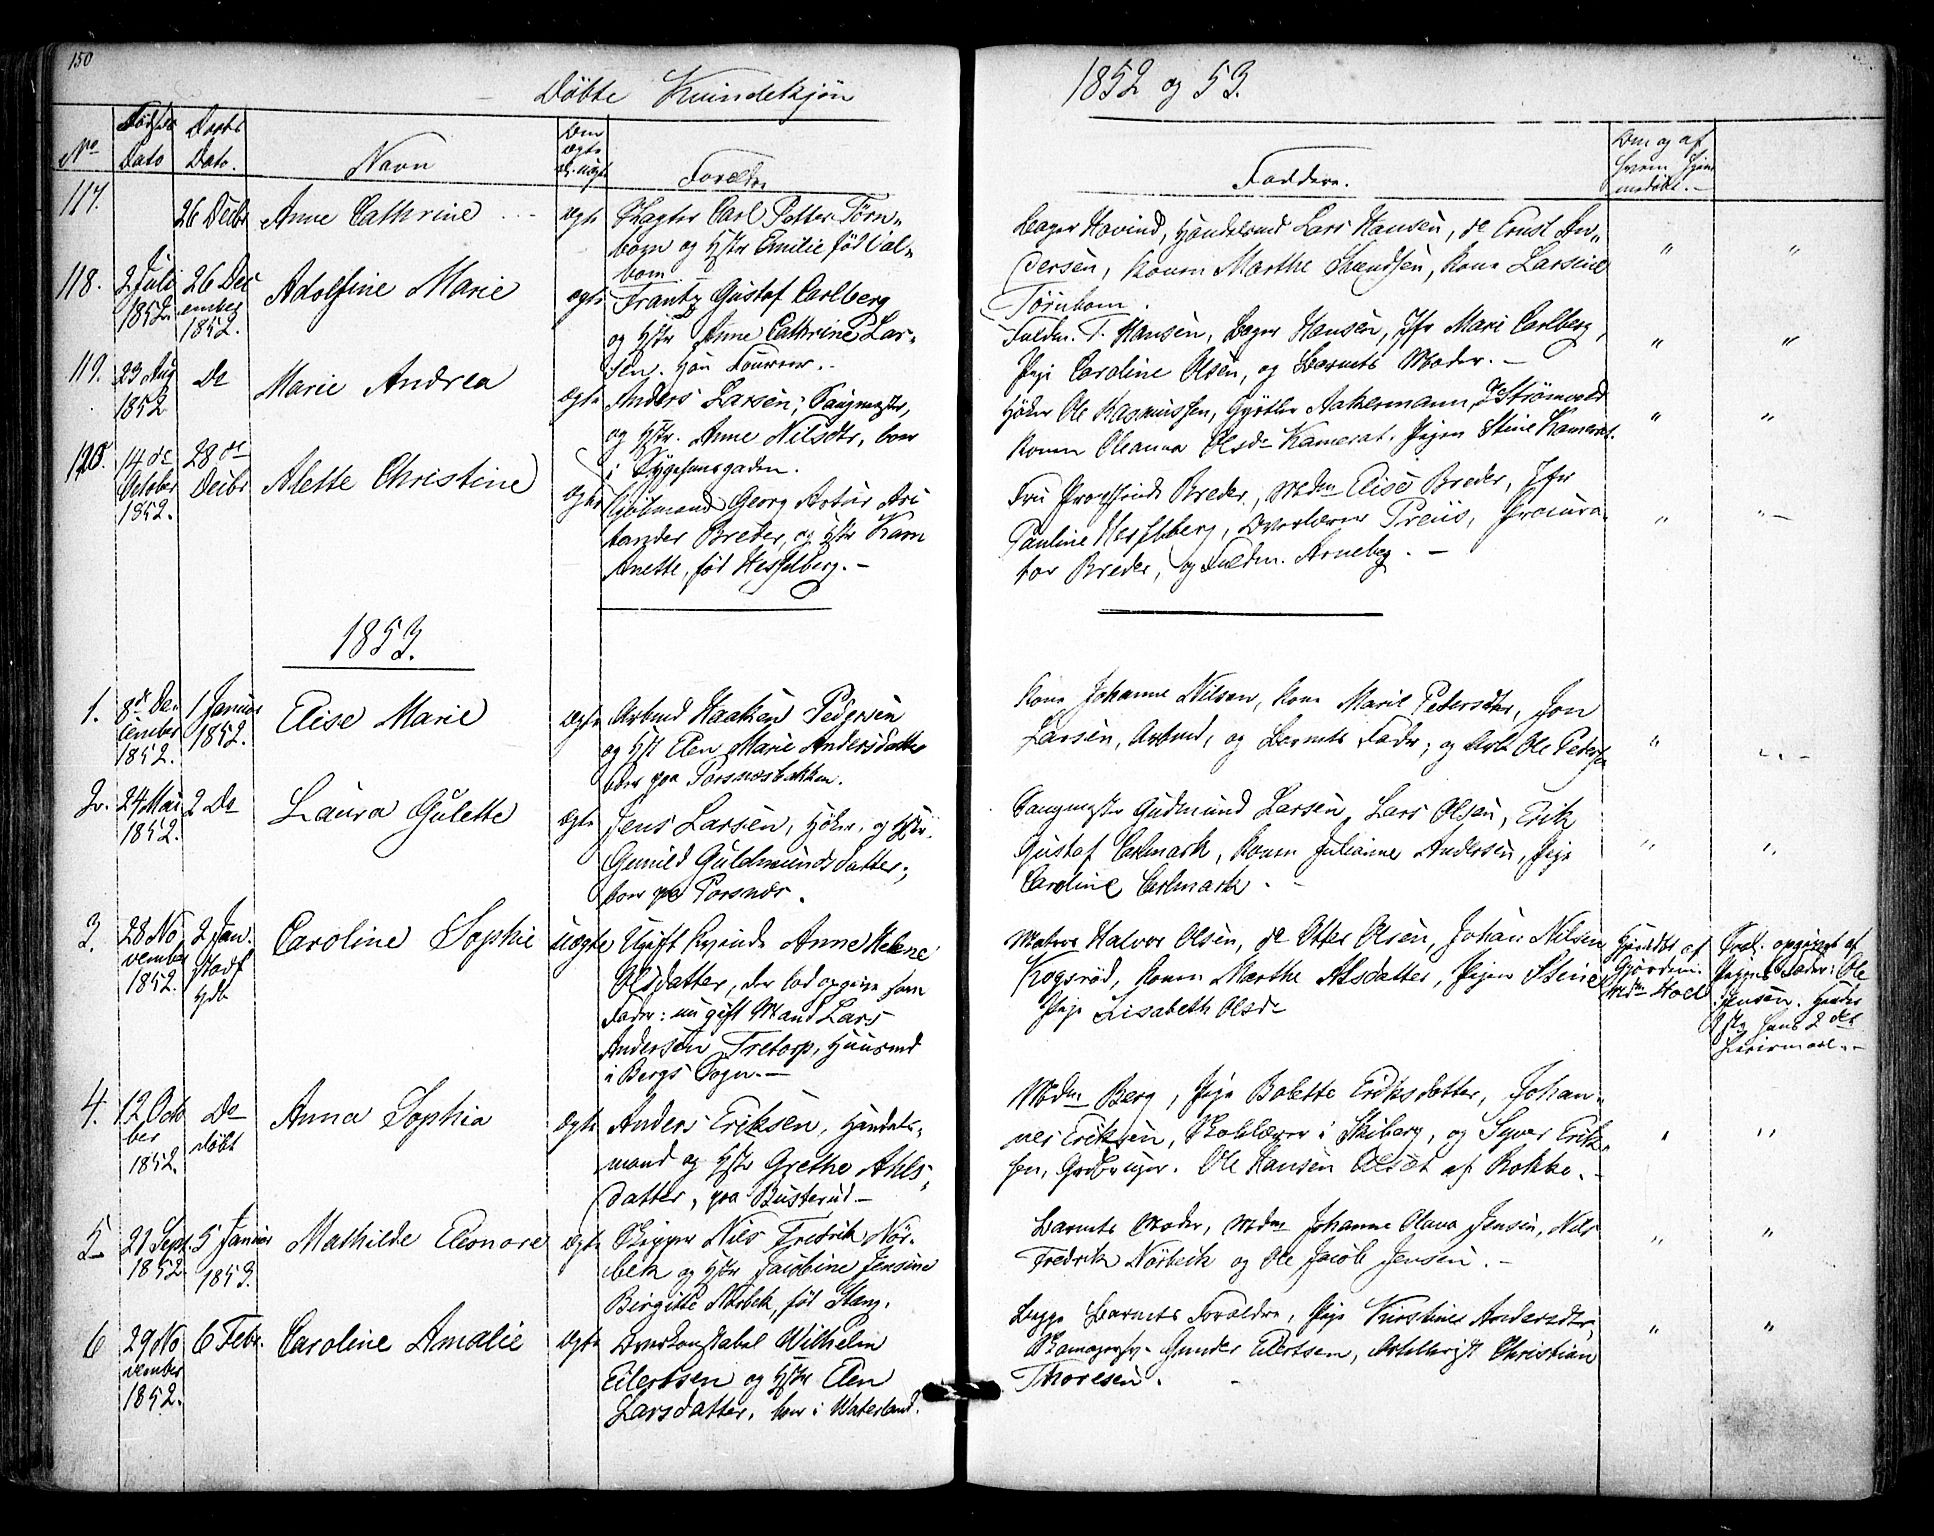 150
Døbte Kvindekjøn
1852 og 53.
No
Fødsels Dato
Daabs Dato.
Navn
Om ægte el. uægte
Forældre
Faddere.
Om og af hvem hjemmedøbt.
117.
26 Decbr
Anne Cathrine
ægte
Slagter Carl Petter Törn-
bom og Hstr Emilie fød Cal-
bom
Bager Hovind, Handelsmd Lars Hansen, do Ernst An-
dersen, Konen Marthe Svendsen, Kone Larsine
Törnbom.
" "
118.
2 Juli
1852.
26 Dec
ember
1852.
Adolfine Marie
ægte
Frantz Gustaf Carlberg
og Hstr Anne Cathrine Lar-
sen.
Fuldm. T. Hansen, Bager Hansen, Jfr Marie Carlberg,
Pige Caroline Olsen, og Barnets Moder. -
" "
119.
23 Aug
1852
Do
Marie Andrea
ægte
Anders Larsen, Saugmester,
og Hstr. Anne Nilsdtr, boer
i Sygehusgaden.
Høker Ole Rasmussen, Gjørtler Aakermann,
Konen Oleanna Olsdr Kamerat, Pigen Stine Kamerat.
" "
120.
14 de
October
1852.
28 de
Decbr
Alette Christine
ægte
Georg Artur Ari
Breder, og Hstr Karn
Anette, fød Hesselberg. -
Fru Breder, Mdm Elise Breder, Jfr
Pauline Hesselberg, Overlærer Preus, Procura-
tor Breder, og Fuldm. Arneberg. -
" " -
1853.
1.
8de De-
cember
1852.
1 Januar
1852.
Elise Marie
ægte
Arbmd Haaken Pedersen
og Hst Elen Marie Andersdatter
boer paa Torsnæsbakken.
Kone Johanne Nilsen, Kone Maril Petersdtr, Jon
Larsen, Arbmd, og Barnets Fader, og Arb Ole Pedersen
" " -
2.
24 Mai
1852.
2 Do
Laura Gulette
ægte
Jens Larsen, Høker, og Hstr.
Gunild Guldmundsdatter,
boer paa Torsnæs.
Saugmester Gudmund Larsen, Lars Olsen, Erik
Gustaf Carlmark, Konen Julianne Andersen, Pige
Caroline Carlmark. -
" "
3.
28 No
vember
1852.
2 Jan.
Caroline Sophie
uægte
Ugift Qvinde Anne Helene
Olsdatter, der lod opgive som
Fader: ungift Mand Lars
Andersen Tretorp, Huusmd
i Bergs Sogn. -
Matros Halvor Olsen, do Otter Olsen, Johan Nilsen
Kogsrød, Konen Marthe Alsdatter, Pigen Stine
Pige Lisabeth Olsdr
Hjemdøbt af
Gjordem.
Mdm Holl
opgivet af
Pigens Fader: Ole
Jensen. Hendes
og hans 2 det
Leiermaal. -
4.
12 Octo
ber
1852.
Do
døbt
Anna Sophia
ægte
Anders Eriksen, Handels-
mand og Hstr Grethe Ahls-
datter, paa Busterud -
Mdm Berg, Pige Bolette Eriksdatter, Johan-
nes Eriksen, Skolelærer i Skiberg, og Syver Erik-
sen, Grdbruger. Ole Hansen Ollsæt af Rokke. -
" "
5
21 Sept.
1852
5 Januar
1853.
Mathilde Eleonore
ægte
Skipper Nils Fredrik Nör-
bek og Hstr Jacobine Jensine
Birgitte Nörbek, fød Stang.
Barnets Moder, Mdm Johanne Olava Jensen, Nils
Fredrik Nörbeck og Ole Jacob Jensen. -
" "
6
29 No
vember
1852.
6 Febr.
Caroline Amalie
ægte
Overkonstabel Wilhelm
Eilertsen og Hstr Elen
Larsdatter, boer i Waterland.
Begge Barnets Forældre, Pige Kirstine Andersdtr,
Skomagersv. Gunder Eilertsen, Christian
Thoresen. -
" "